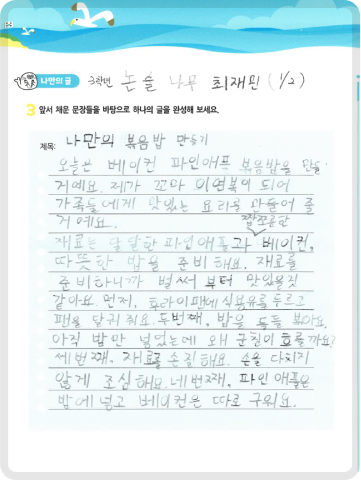 나만의 글
3학년 논술 나무 최재민 (1/2)
3 앞서 채운 문장들을 바탕으로 하나의 글을 완성해 보세요.
제목: 나만의 볶음밥 만들기
오늘은 베이컨 파인애플 볶음밥을 만들
거예요. 제가 꼬마 이연복이 되어
가족들에게 맛있는 요리을 만들어 줄
거예요.
짭쪼름한
재료는 달달한 파인애플과 베이컨,
따뜻한 밥을 준비해요. 재료를
준비하니까 벌써 부터 맛있을것
같아요. 먼저, 후라이팬에 식용유를 두르고
팬을 달궈줘요. 두번째, 밥을 들들 볶아요.
아직 밥만 넣었는데 왜 군침이 흐를까요?
세번째, 재료를 손질해요. 손을 다치지
않게 조심해요. 네번째, 파인애플은
밥에 넣고 베이컨은 따로 구워요.